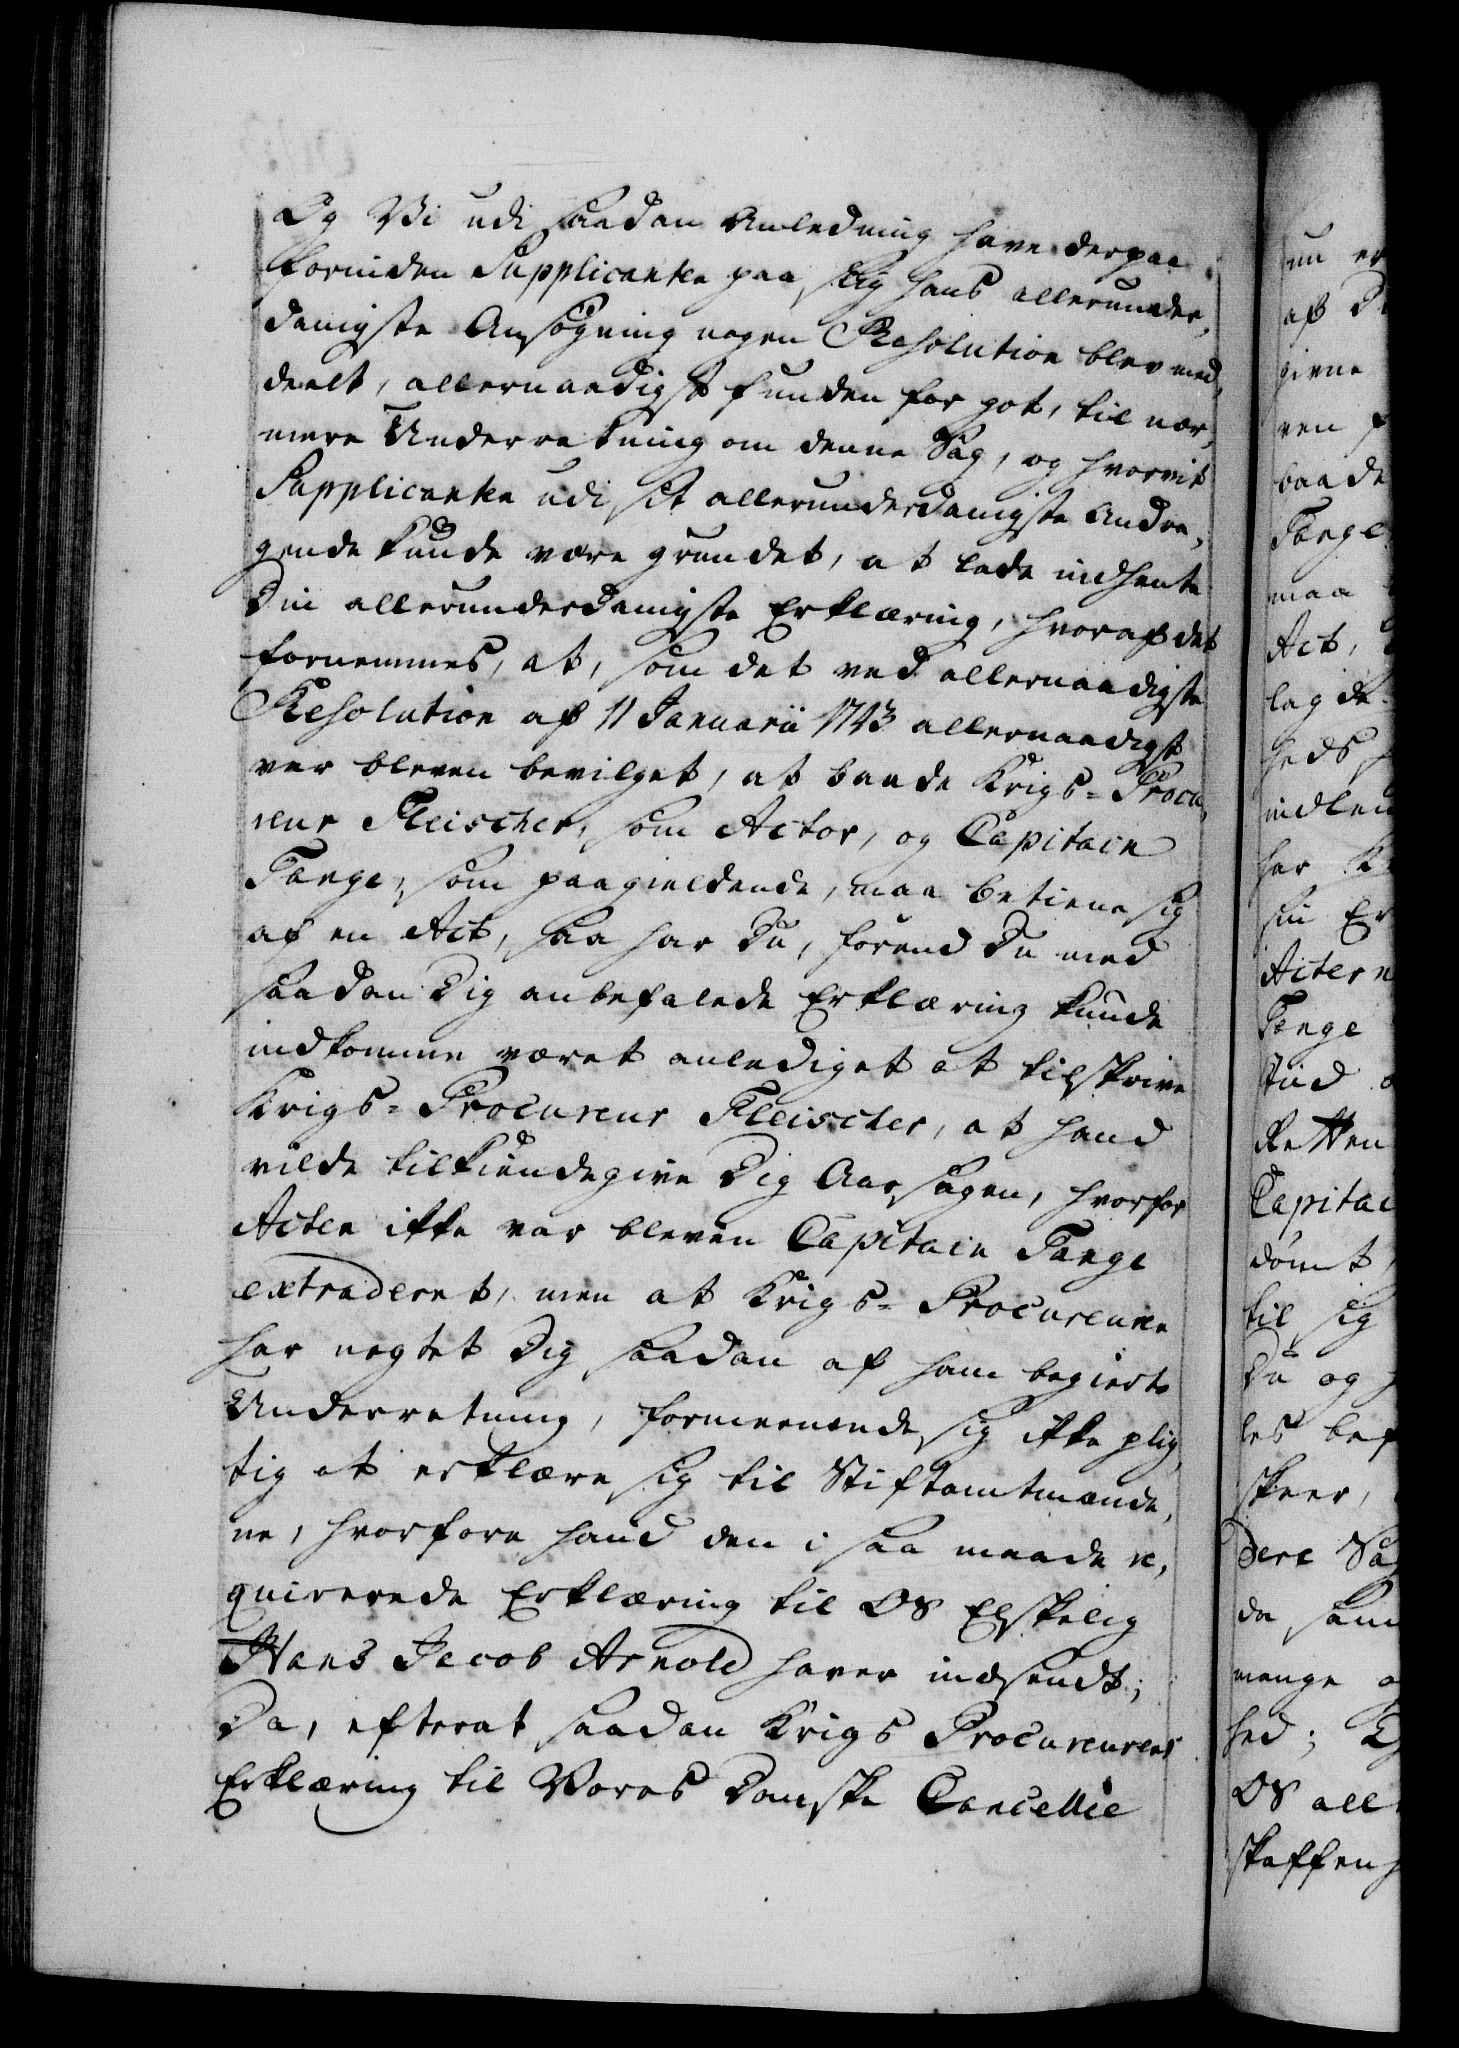 Og Vi udi saadan Anledning have derpaa
forinden Supplicanten paa slig hans allerunder,
danigste Ansøgning nogen Resolution blev med,
deelt, allernaadigst funden for got, til nær,
mere Underretning om denne Sag, og hvorvit
Supplicanten udi sit allerunderdanigste Andra,
gende kunde være grundet, at lade indhente
Din allerunderdanigste Erklæring, hvoraf det
fornemmes, at, som det ved allernaadigste
Resolution af 11 Januarii 1743 allernaadigst
var bleven bevilget, at baade Krigs=Procu,
reur Fleischer, som Actor, og Capitain
Tange, som paagieldende, maa betiene sig
af en Act, saa har Du, førend Du med
saadan Dig anbefalede Erklæring kunde
indkomme været anlediget at tilskrive
Krigs=Procureur Fleischer, at hand
vilde tilkiendegive Dig Aarsagen, hvorfor
Acten ikke var bleven Capitain Tange
extraderet, men at Krigs=Procureuren
har negtet Dig saadan af ham begierte
Underretning, formeenende sig ikke plig,
tig at erklære sig til Stiftamtmænde,
ne, hvorfore hand den i saa maade re,
quirerede Erklæring til OS Elskelig
Hans Jacob Arnold haver indsendt;
Da, efterat saadan Krigs Procureurens
Erklæring til Vores Danske Cancellie